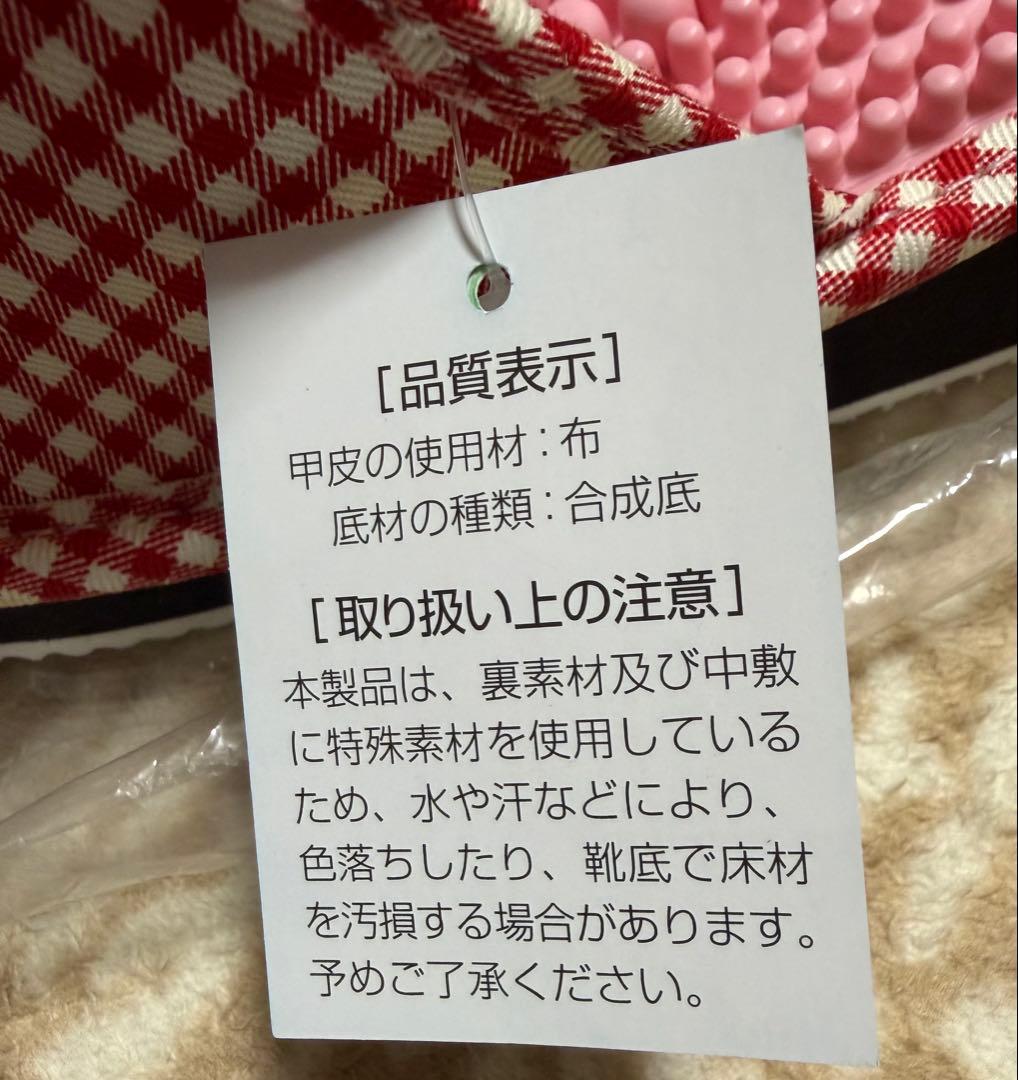 [品質表示]
甲皮の使用材:布
底材の種類:合成底
[取り扱い上の注意]
本製品は、裏素材及び中敷
に特殊素材を使用している
ため、水や汗などにより、
色落ちしたり、靴底で床材
を汚損する場合があります。
予めご了承ください。